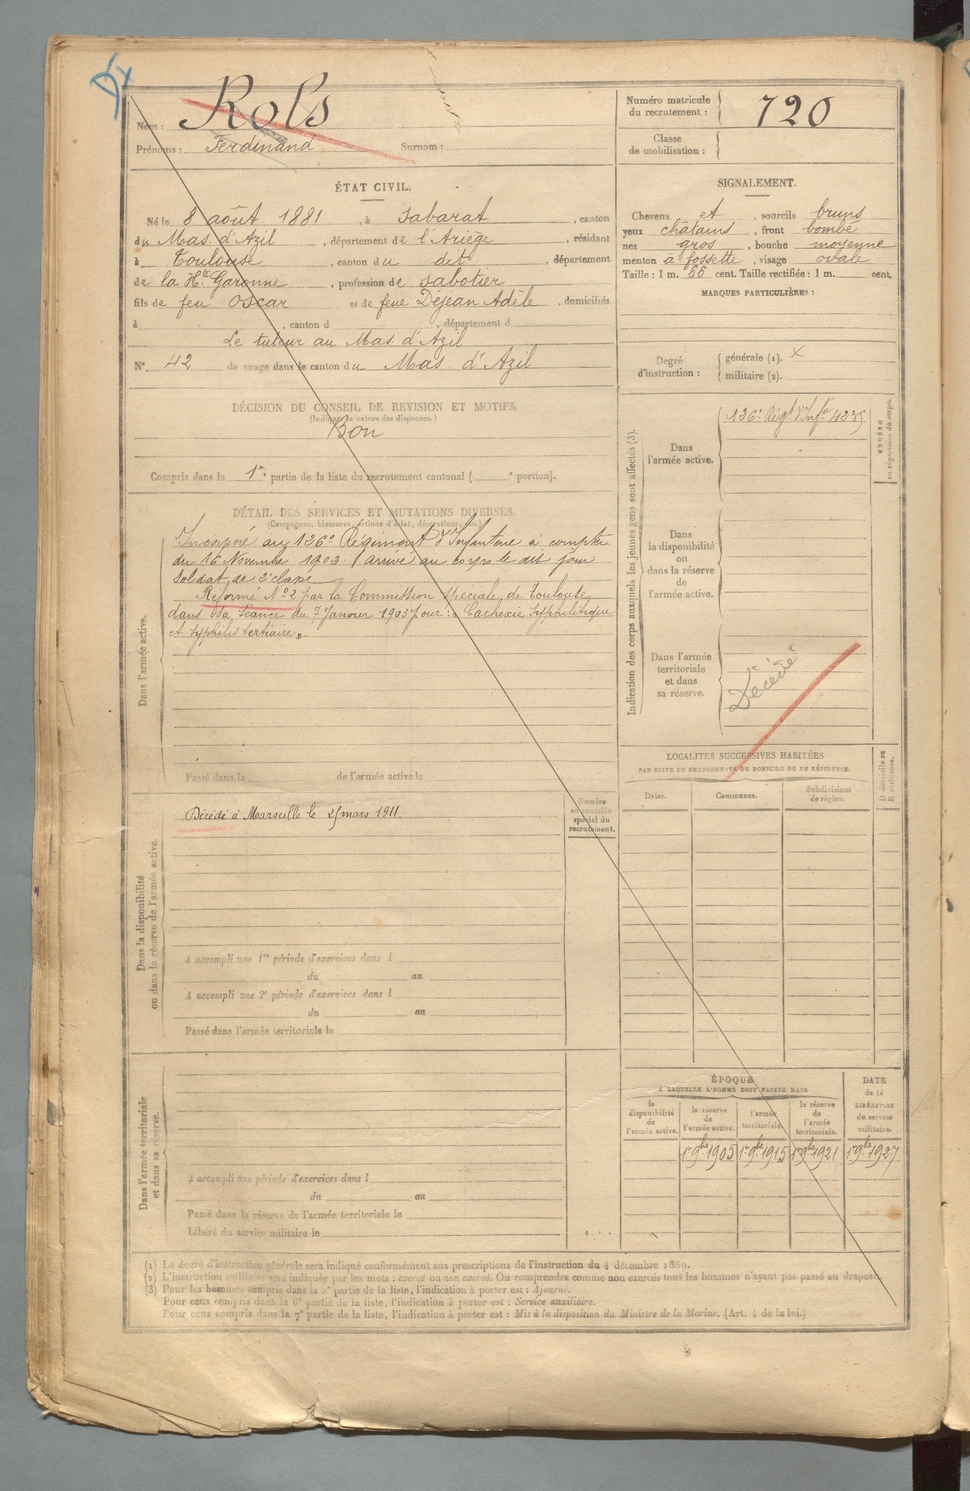 Nom : Rols
Prénoms : Ferdinand Surnom :
Numéro matricule du recrutement : 720
Classe de mobilisation :
ÉTAT CIVIL.
Né le 8 août 1881, à Sabarat, canton
du Mas d'Azil, département de l'Ariège, résidant
à Toulouse, canton du dit, département
de la Hte Garonne, profession de sabotier
fils de feu Oscar et de feue Déjean Adèle, domiciliés
à , canton d , département d
Le tuteur au Mas d'Azil
N° 42 de tirage dans le canton du Mas d'Azil
SIGNALEMENT.
Cheveux et , sourcils bruns
yeux châtains , front bombé
nez gros , bouche moyenne
menton à fossette , visage ovale
Taille : 1 m. 66 cent. Taille rectifiée : 1 m. cent.
MARQUES PARTICULIÈRES :
Degré d'instruction : générale (1). x
militaire (2).
DÉCISION DU CONSEIL DE REVISION ET MOTIFS.
(Indiquer la nature des dispenses.)
Bon
Compris dans la 1re partie de la liste du recrutement cantonal ( e portion).
DÉTAIL DES SERVICES ET MUTATIONS DIVERSES.
(Campagnes, blessures, actions d'éclat, décorations, etc.)
Dans l'armée active.
Incorporé au 126e Régiment d'Infanterie à compter
du 16 Novembre 1902. Arrivé au corps le dit jour
soldat de 2e classe
Réformé N° 2 par la Commission spéciale de Toulouse
dans sa séance du 7 Janvier 1903 pour : « Cachexie syphilitique
et syphilis tertiaire »
Passé dans la de l'armée active le
Indication des corps auxquels les jeunes gens sont affectés (3).
NUMÉRO au répertoire du corps.
Dans l'armée active.
126e Régt d'Infie 4235
Dans la disponibilité ou dans la réserve de l'armée active.
Dans l'armée territoriale et dans sa réserve.
Décédé
LOCALITÉS SUCCESSIVES HABITÉES
PAR SUITE DE CHANGEMENTS DE DOMICILE OU DE RÉSIDENCE.
Dates. Communes. Subdivisions de région. D domicile ou R résidence.
Dans la disponibilité ou dans la réserve de l'armée active.
Numéro au contrôle spécial du recrutement.
Décédé à Marseille le 25 mars 1911.
A accompli une 1re période d'exercices dans l
du au
A accompli une 2e période d'exercices dans l
du au
Passé dans l'armée territoriale le
Dans l'armée territoriale et dans sa réserve.
A accompli une période d'exercices dans l
du au
Passé dans la réserve de l'armée territoriale le
Libéré du service militaire le
ÉPOQUE
A LAQUELLE L'HOMME DOIT PASSER DANS
DATE de la LIBÉRATION du service militaire.
la disponibilité de l'armée active. la réserve de l'armée active. l'armée territoriale. la réserve de l'armée territoriale.
1er 9bre 1905 1er 9bre 1915 1er 9bre 1921 1er 9bre 1927
(1) Le degré d'instruction générale sera indiqué conformément aux prescriptions de l'instruction du 4 décembre 1889.
(2) L'instruction militaire sera indiquée par les mots : exercé ou non exercé. On comprendra comme non exercés tous les hommes n'ayant pas passé au drapeau.
(3) Pour les hommes compris dans la 5e partie de la liste, l'indication à porter est : Ajourné.
Pour ceux compris dans la 6e partie de la liste, l'indication à porter est : Service auxiliaire.
Pour ceux compris dans la 7e partie de la liste, l'indication à porter est : Mis à la disposition du Ministre de la Marine. (Art. 4 de la loi.)